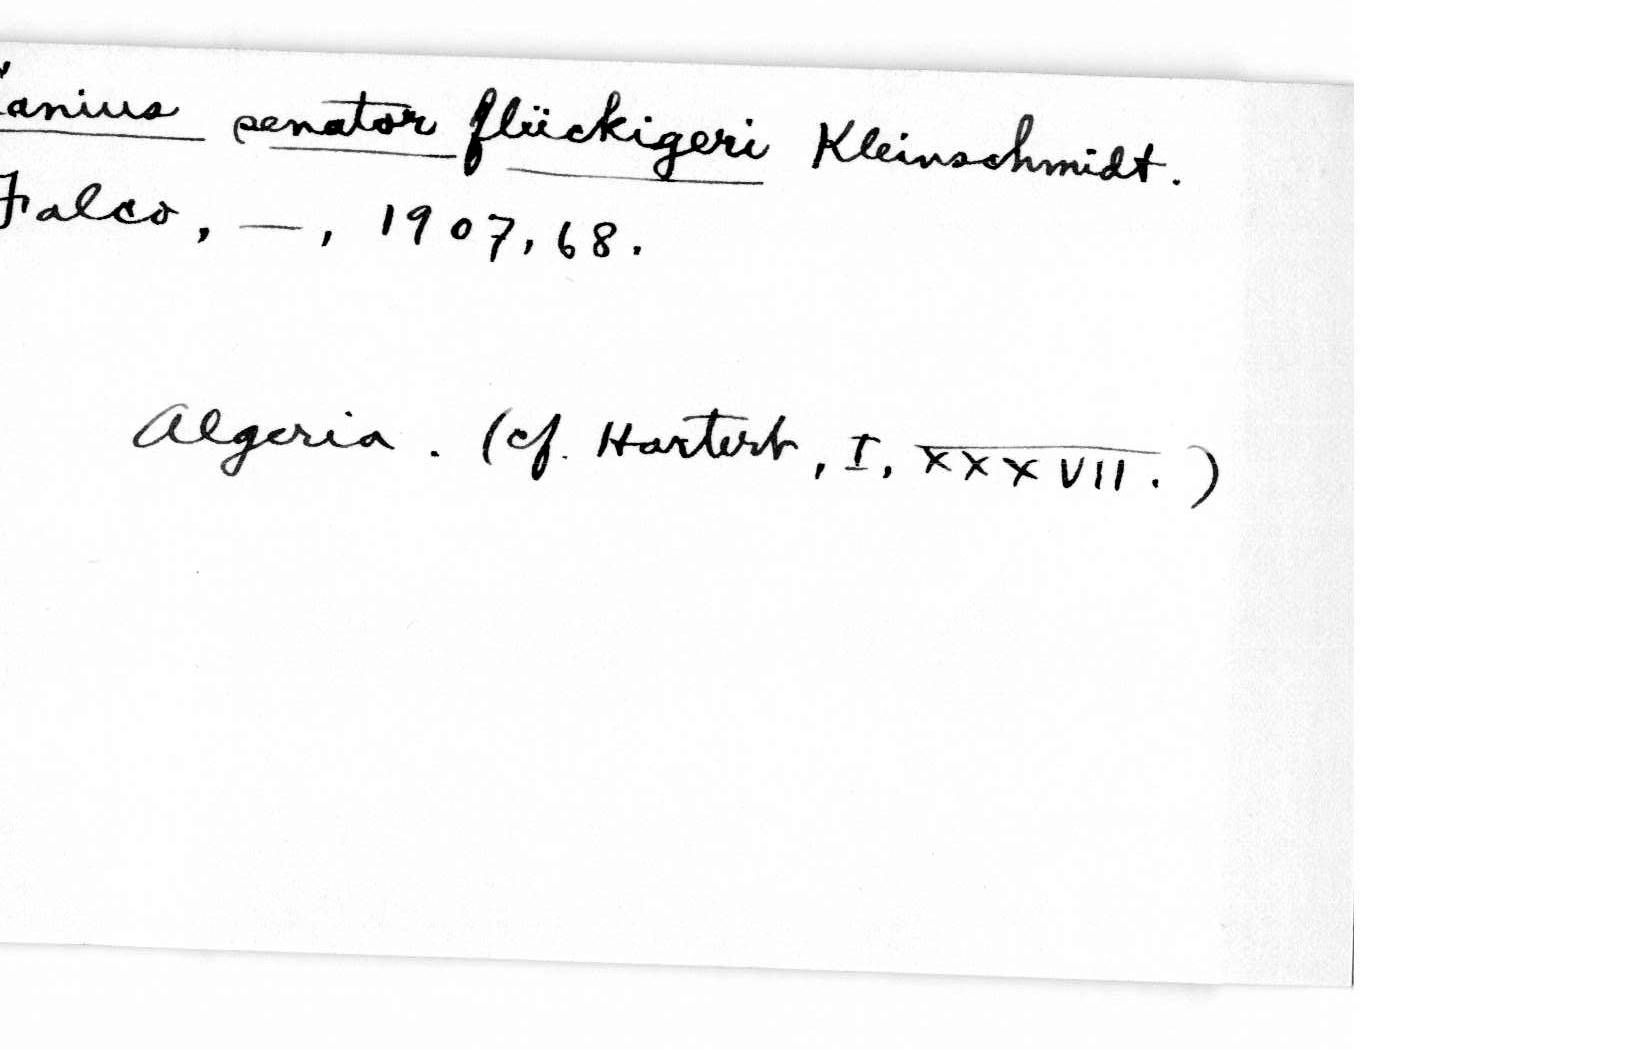 Lanius senator flückigeri Kleinschmidt.
Falco, —, 1907, 68.
Algeria. (cf. Hartert, I, XXXVII.)